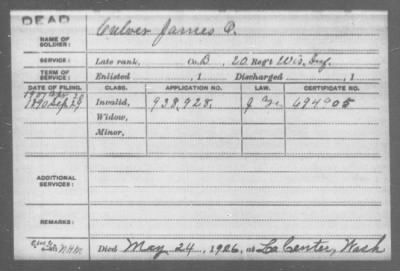 DEAD
NAME OF SOLDIER: Culver James P.
SERVICE: Late rank, Co. B, 20 Reg't Wis. Inf.
TERM OF SERVICE: Enlisted , 1 Discharged , 1
DATE OF FILING. CLASS. APPLICATION NO. LAW. CERTIFICATE NO.
1907 Apr
1890 Sep 29 Invalid, 938,928. 694905
Widow,
Minor,
ADDITIONAL SERVICES:
REMARKS:
Died May 24, 1926, at La Center, Wash